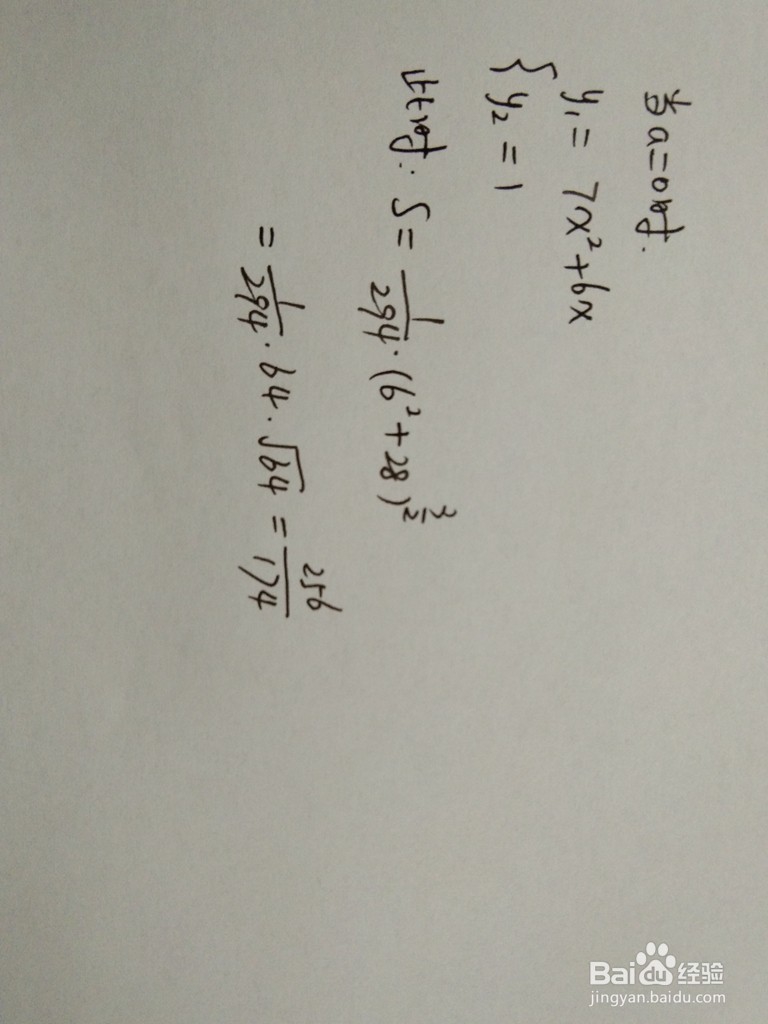 当a=0时.
{ y₁ = 7x²+6x
y₂ = 1
此时: S = 1/294 · (6²+28)^(3/2)
= 1/294 · 64 · √64 = 256/174
Baidu经验
jingyan.baidu.com